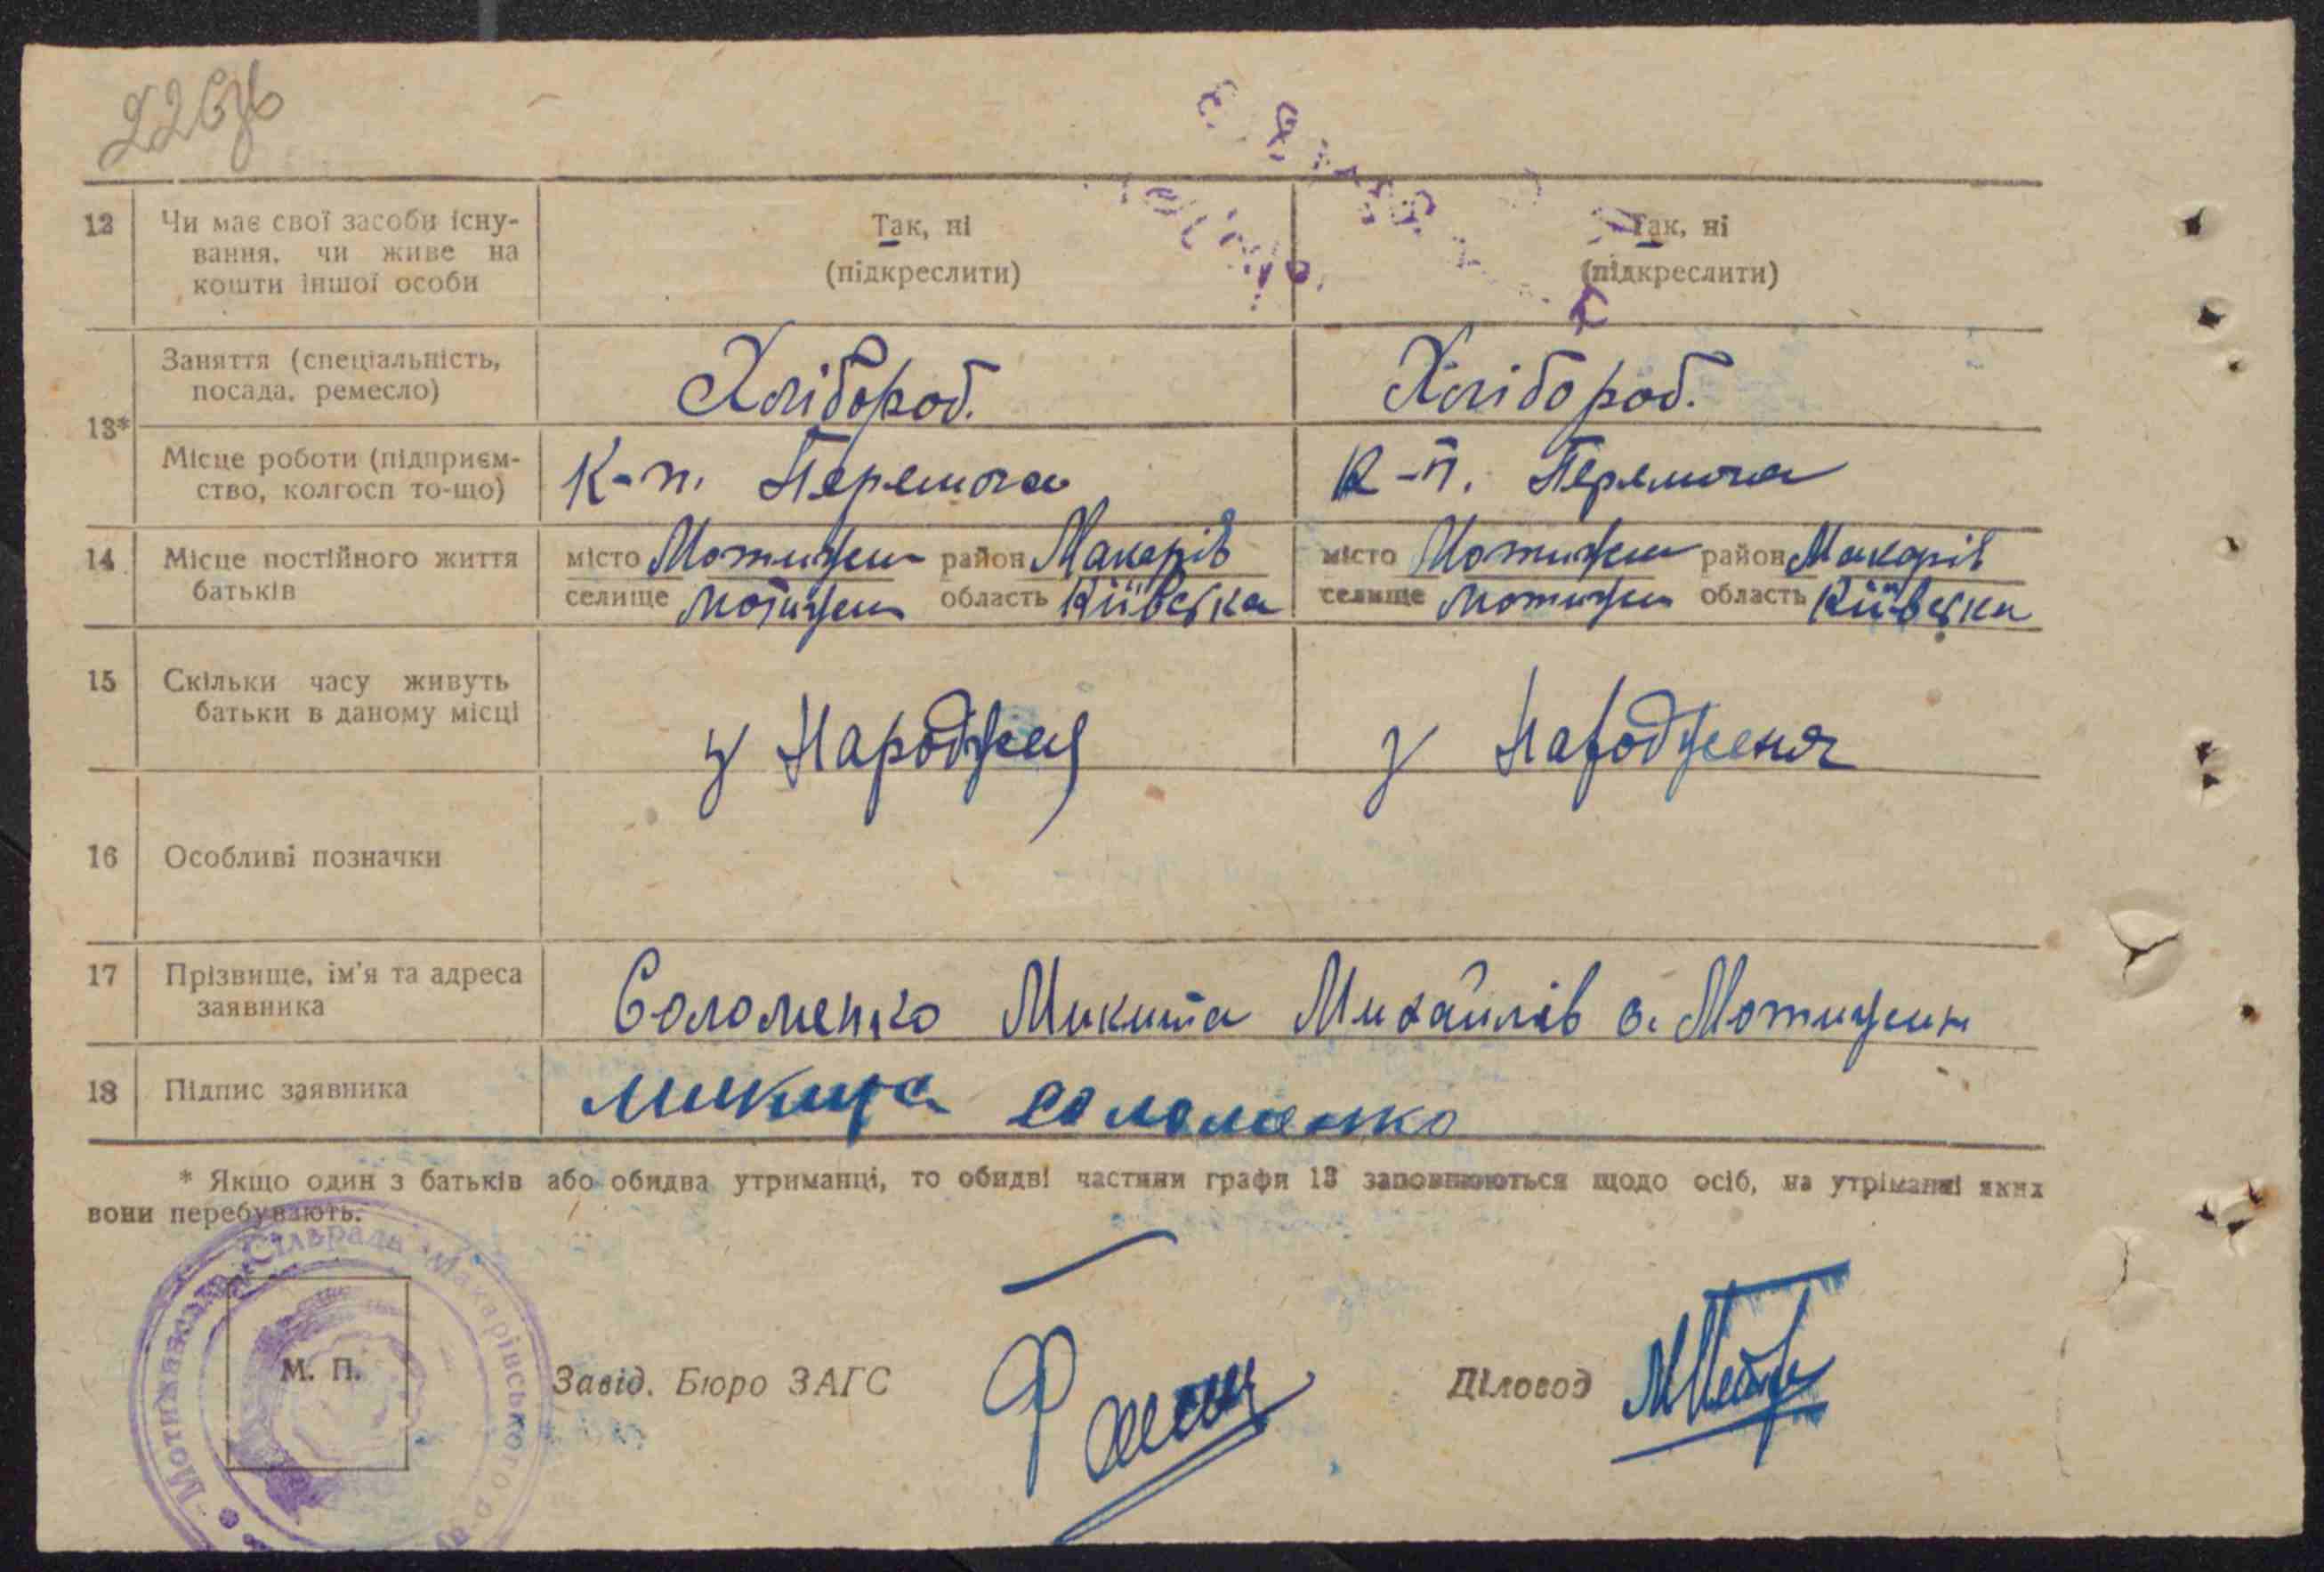 226зв
12 Чи має свої засоби існу-
вання, чи живе на
кошти іншої особи
Так, ні Так, ні
(підкреслити) (підкреслити)
13*
Заняття (спеціальність,
посада, ремесло)
Хлібороб. Хлібороб.
Місце роботи (підприєм-
ство, колгосп то-що)
К-п. Перемога К-п. Перемога
14 Місце постійного життя
батьків
місто Мотижин район Макарів місто Мотижин район Макарів
селище Мотижин область Київська селище Мотижин область Київська
15 Скільки часу живуть
батьки в даному місці
з Народженя з Народженя
16 Особливі позначки
17 Прізвище, ім'я та адреса
заявника
Соломенко Микита Михайлів с. Мотижин
18 Підпис заявника
микита соломенко
* Якщо один з батьків або обидва утриманці, то обидві частини графи 13 заповнюються щодо осіб, на утріманні яких
вони перебувають.
Мотижинська Сілврада Макарівського р
М. П.
Завід. Бюро ЗАГС
Діловод